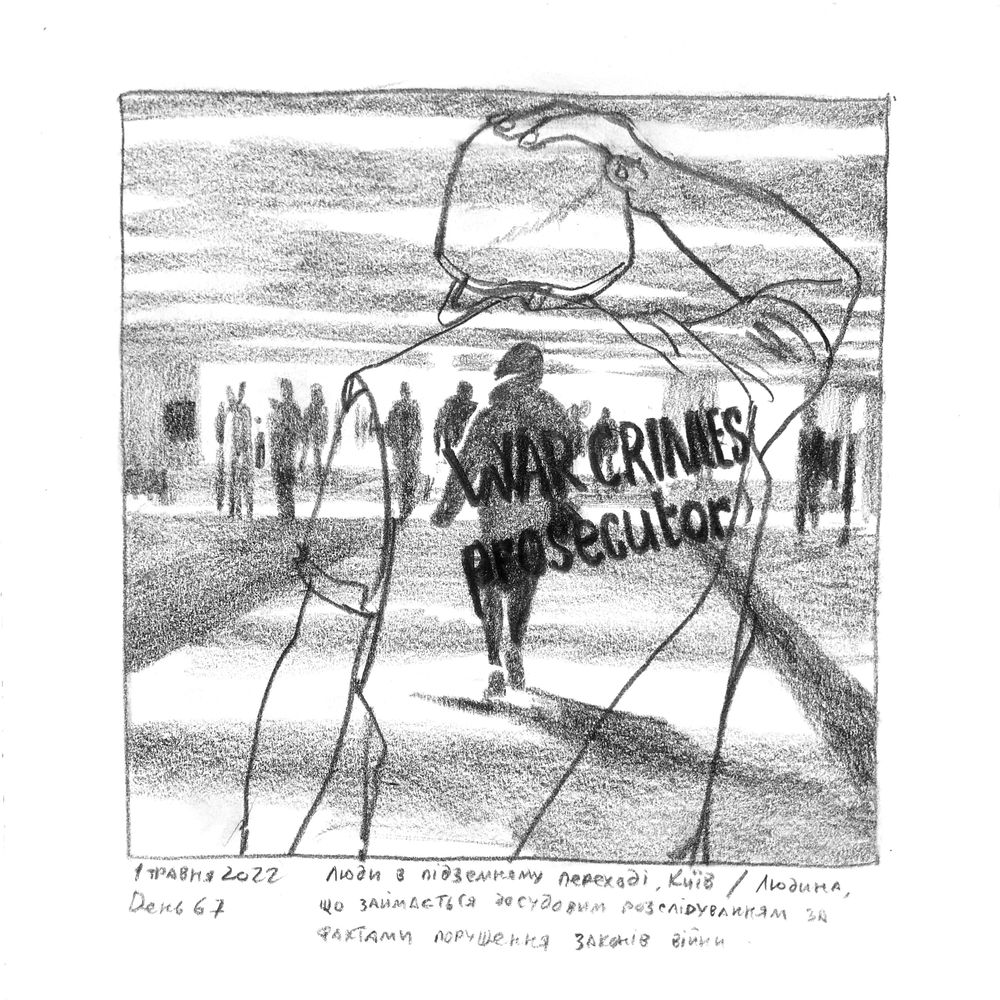 WAR CRIMES
prosecutor
1 травня 2022
День 67
Люди в підземному переході, Київ / Людина,
що займається досудовим розслідуванням за
фактами порушення законів війни